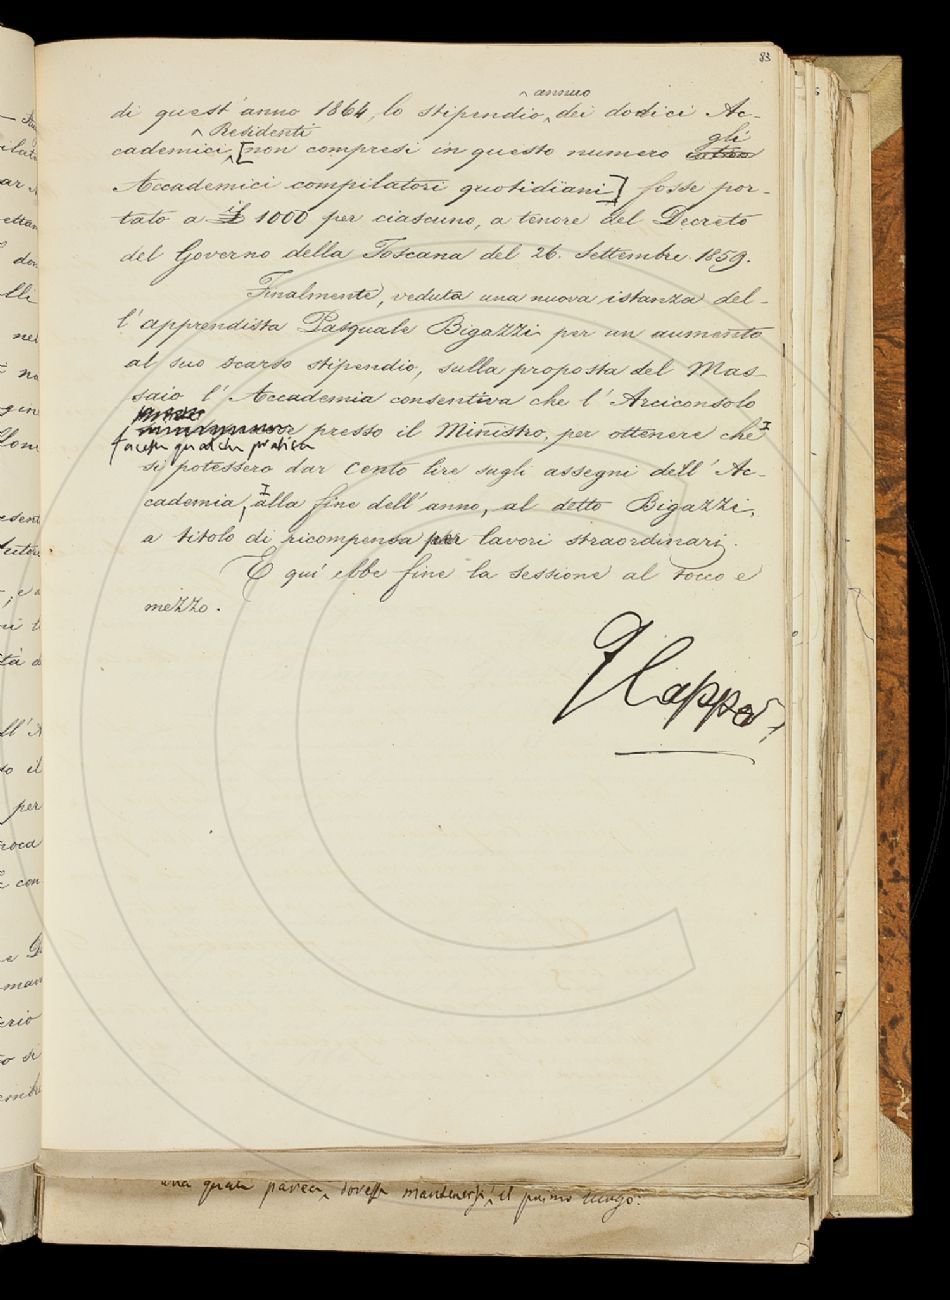 83
annuo
di quest'anno 1864, lo stipendio dei dodici Ac-
Residenti gli
cademici [non compresi in questo numero
Accademici compilatori quotidiani] fosse por-
tato a £ 1000 per ciascuno, a tenore del Decreto
del Governo della Toscana del 26. Settembre 1859.
Finalmente, veduta una nuova istanza del-
l'apprendista Pasquale Bigazzi per un aumento
al suo scarso stipendio, sulla proposta del Mas-
saio l'Accademia consentiva che l'Arciconsolo
presso il Ministro, per ottenere che
facesse qualche pratica
si potessero dar cento lire sugli assegni dell'Ac-
cademia, alla fine dell'anno, al detto Bigazzi,
a titolo di ricompensa per lavori straordinarj.
E quì ebbe fine la sessione al tocco e
mezzo.
una quale pareva dovesse mantenersi il primo luogo.